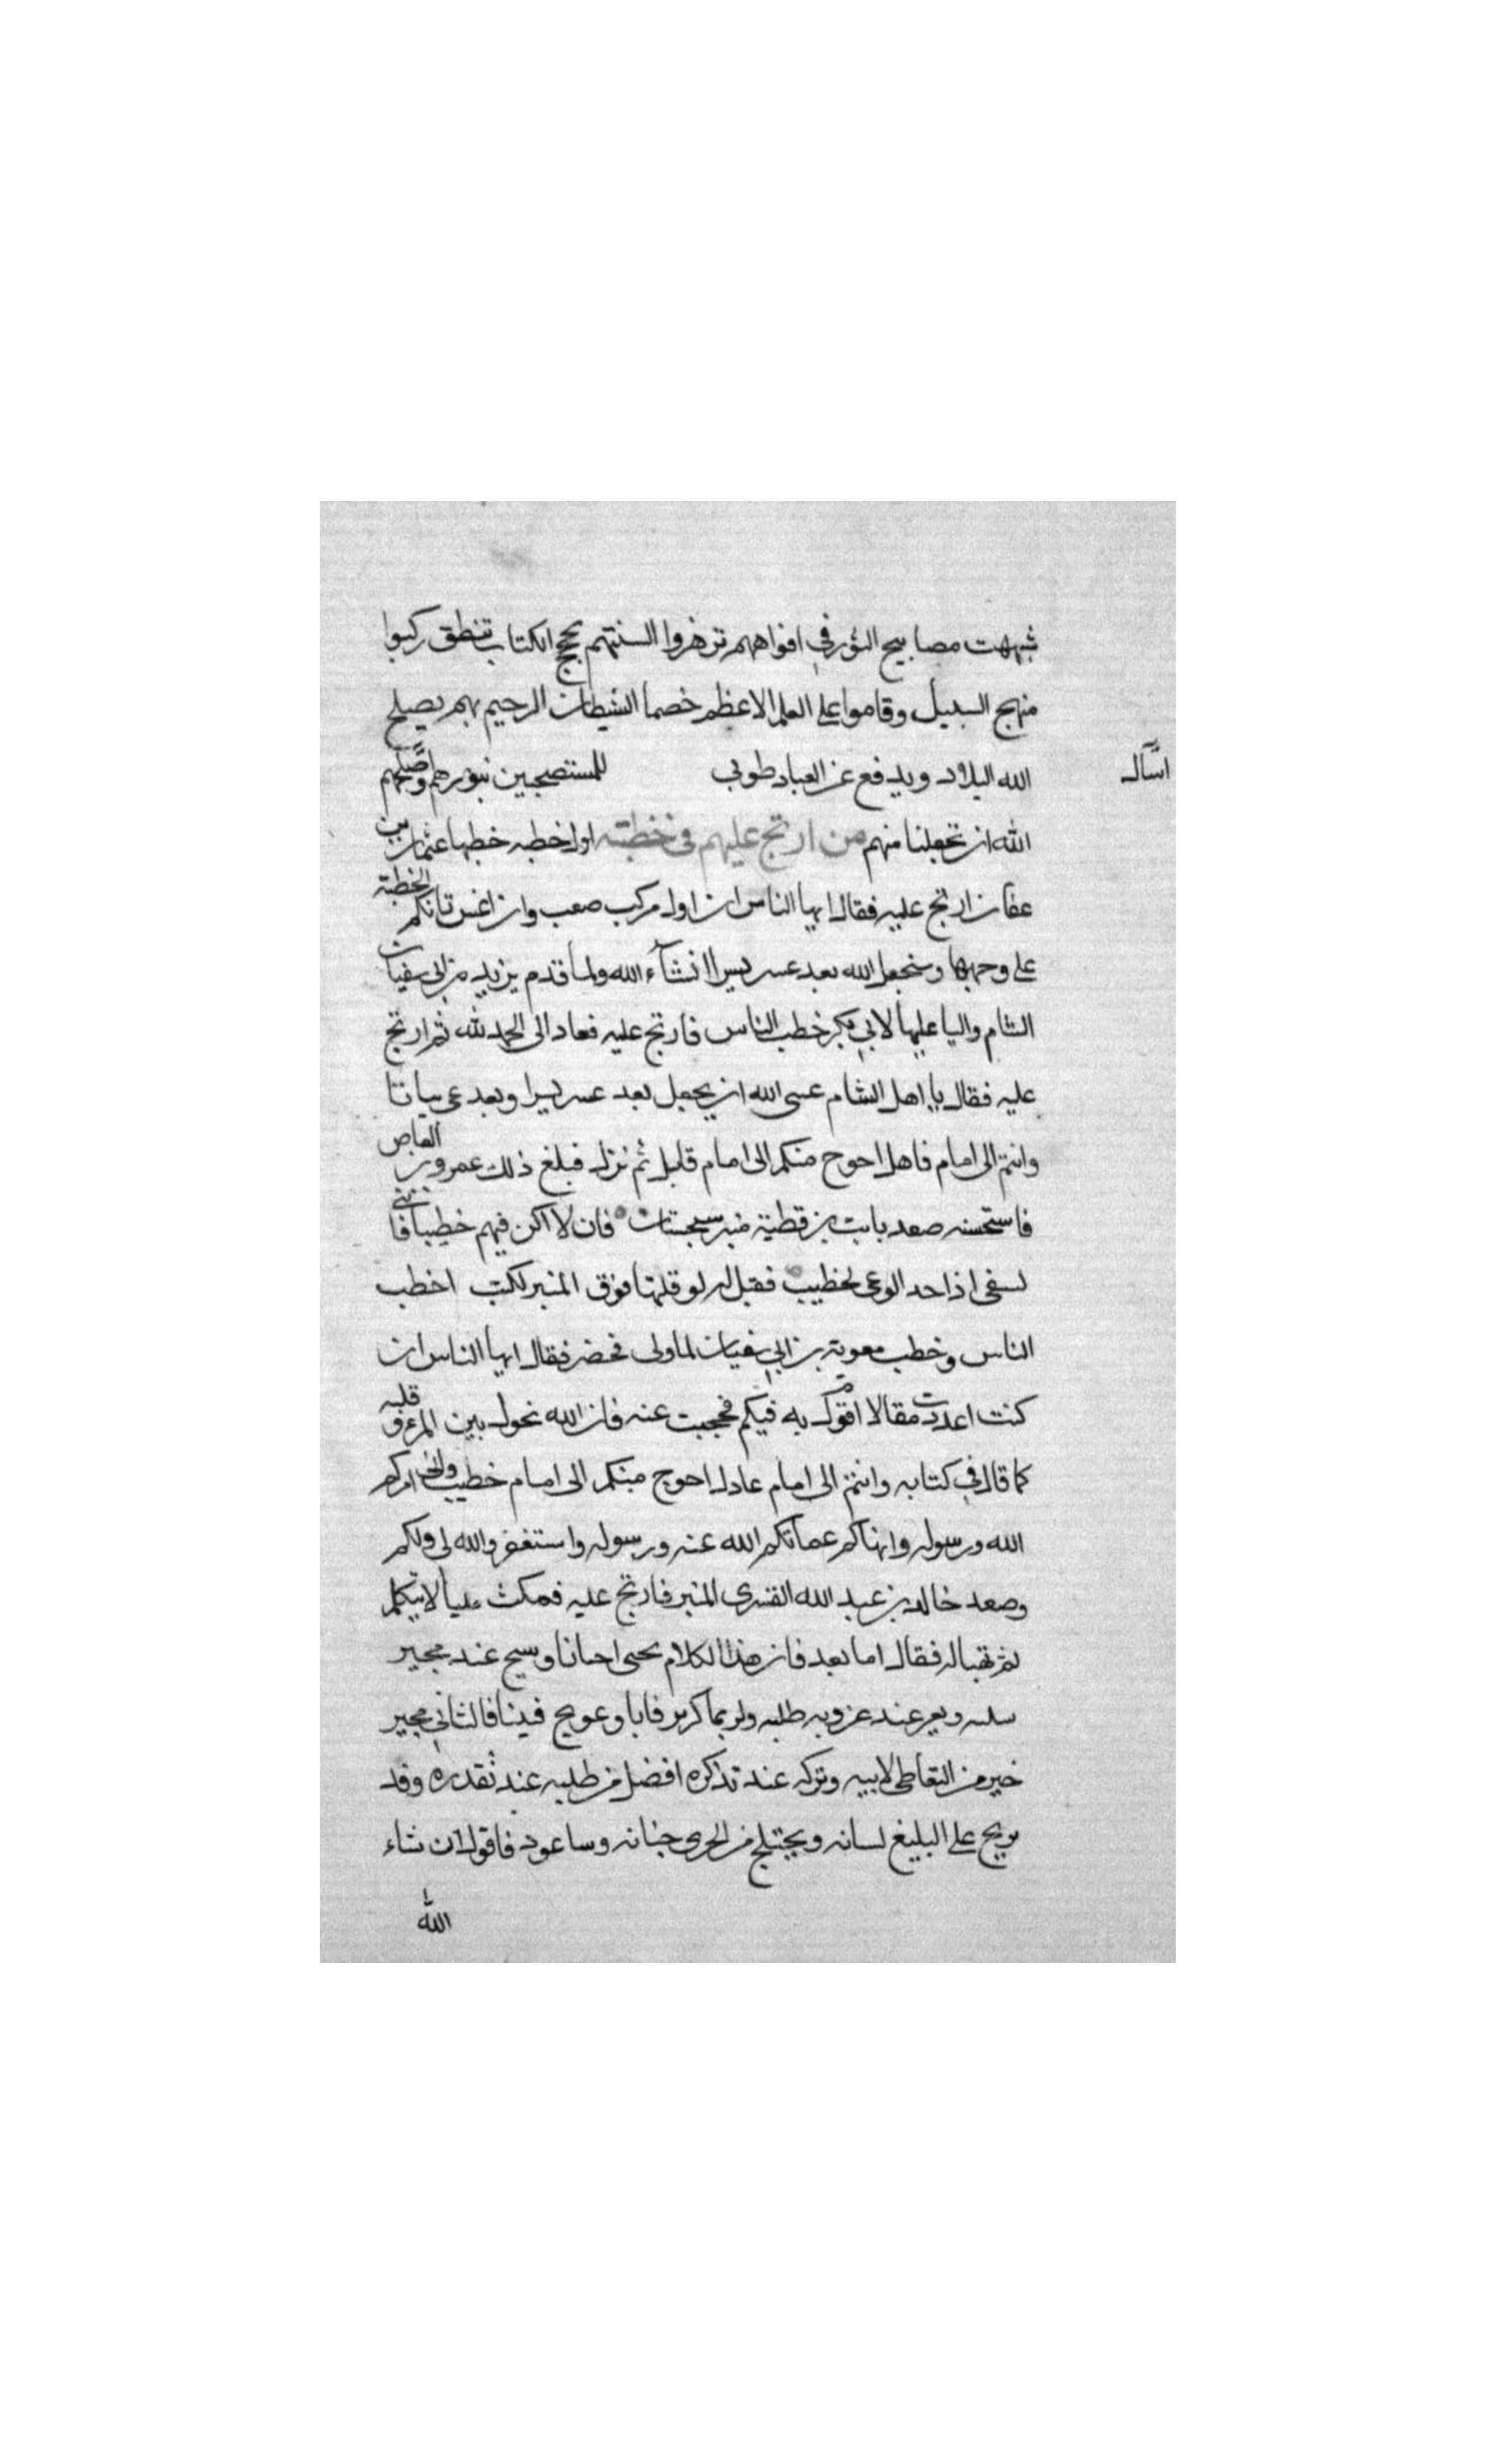 شبهت مصابيح النور في افواههم تزهر والسنتهم بحجج الكتاب تنطق ركبوا
منهج السبيل وقاموا على العلم الاعظم خصما الشيطان الرجيم بهم يصلح
الله البلاد ويدفع عن العباد طوبى للمستصبحين بنورهم
اسآل
الله ان تجعلنا منهم من ارتج عليهم في خطبته اول خطبه خطبها عثمان بن
عفان ارتج عليه فقال ايها الناس ان اول مركب صعب وان اعش تاتكم الخطبة
على وجهها وسنجعل الله بعد عسر يسرا انشآء الله ولما قدم يزيد بن ابي سفيان
الشام واليا عليها لابي بكر خطب الناس فارتج عليه فعاد الى الحمد لله ثم ارتج
عليه فقال يا اهل الشام عسى الله ان يجعل بعد عسر يسرا وبعد عي بيانا
وانتم الى امام فاهل احوج منكم الى امام قايل ثم نزل فبلغ ذلك عمرو بن العاص
فاستحسنه صعد بابت بن قطية منبر سجستان فان لا اكن فيهم خطيبا فا
لسفي اذا حد الوعى لخطيب فقيل له لو قلتها فوق المنبر لكنت اخطب
الناس وخطب معوية بن ابي سفيان لما ولى فحضر فقال ايها الناس ان
كنت اعددت مقالا اقول به فيكم فحجبت عنه فان الله نحول بين المرء وقلبه
كما قال في كتابه وانتم الى امام عادل احوج منكم الى امام خطيب امركم
الله ورسوله وانهاكم عمانكم الله عنه ورسوله واستغفر والله لى ولكم
وصعد خالد بن عبد الله القسرى المنبر فارتج عليه فمكث مليا لا يتكلم
ثم تهيا له فقال اما بعد فان هذا الكلام يحى احيانا و عند مجير
سلسه ويعر عند عزوبه طلبه ولربما كوبر فابا وعويج فينا فالثاني مجير
خير من التعاطى لابيه وتركه عند تذكره افضل من طلبه عند تقدره وقد
يرتج على البليغ لسانه ويجتلج من الجرى جنانه وساعود فاقول ان شاء
الله